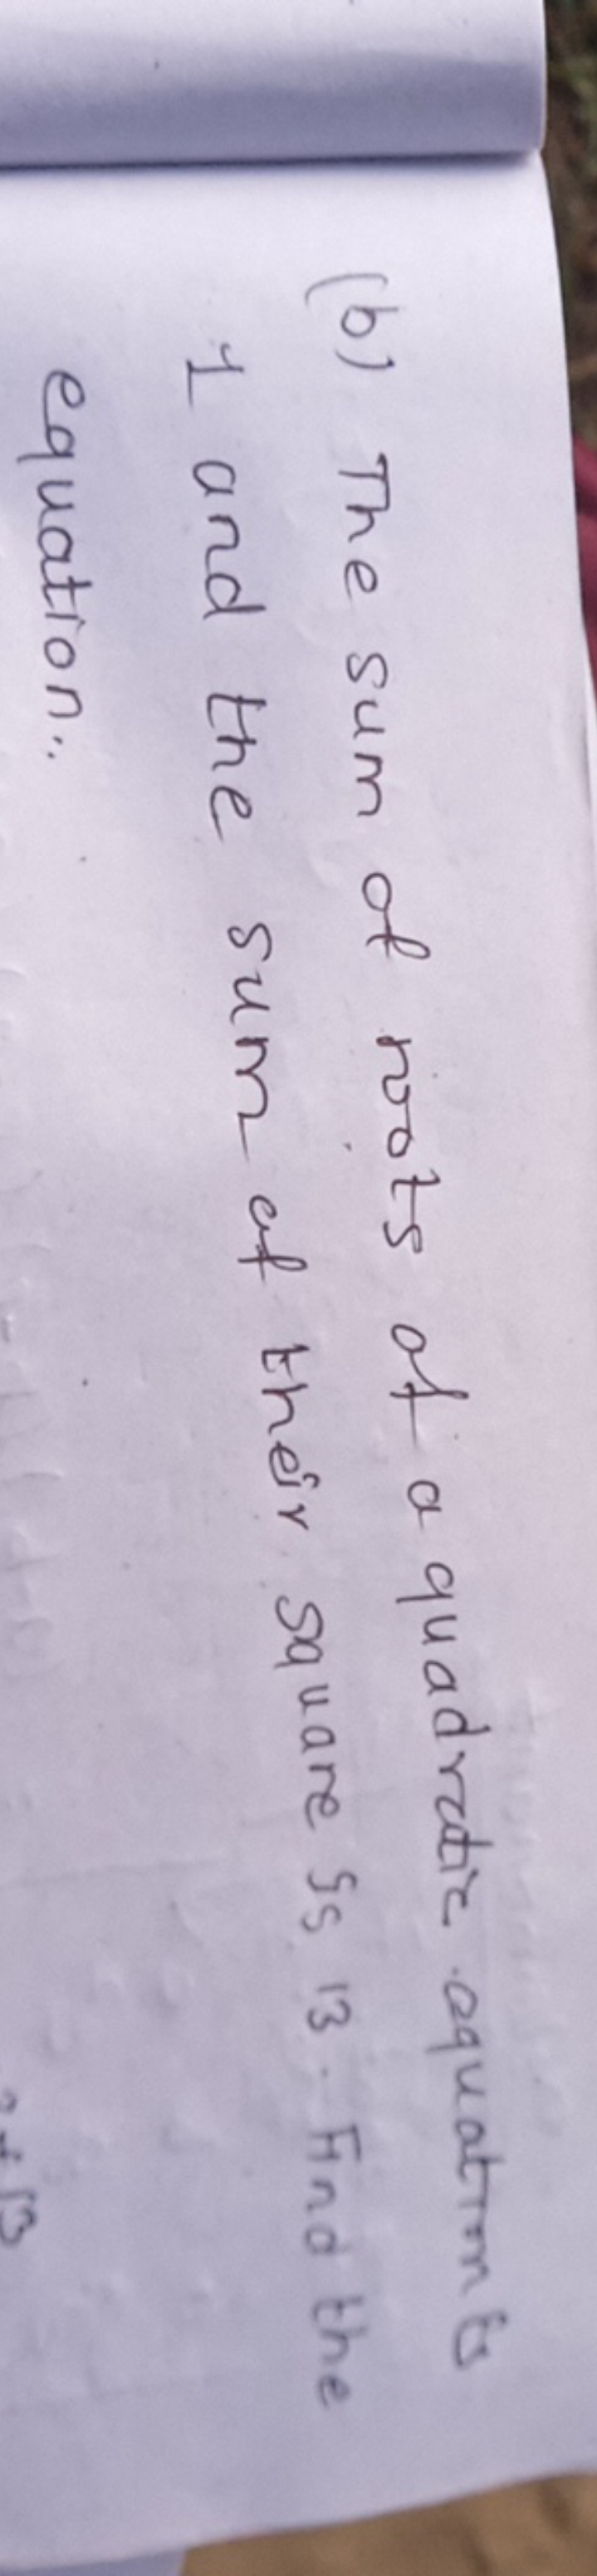 (b) The sum of roots of a quadratic equation is
1 and the sum of their square is 13. Find the
equation..